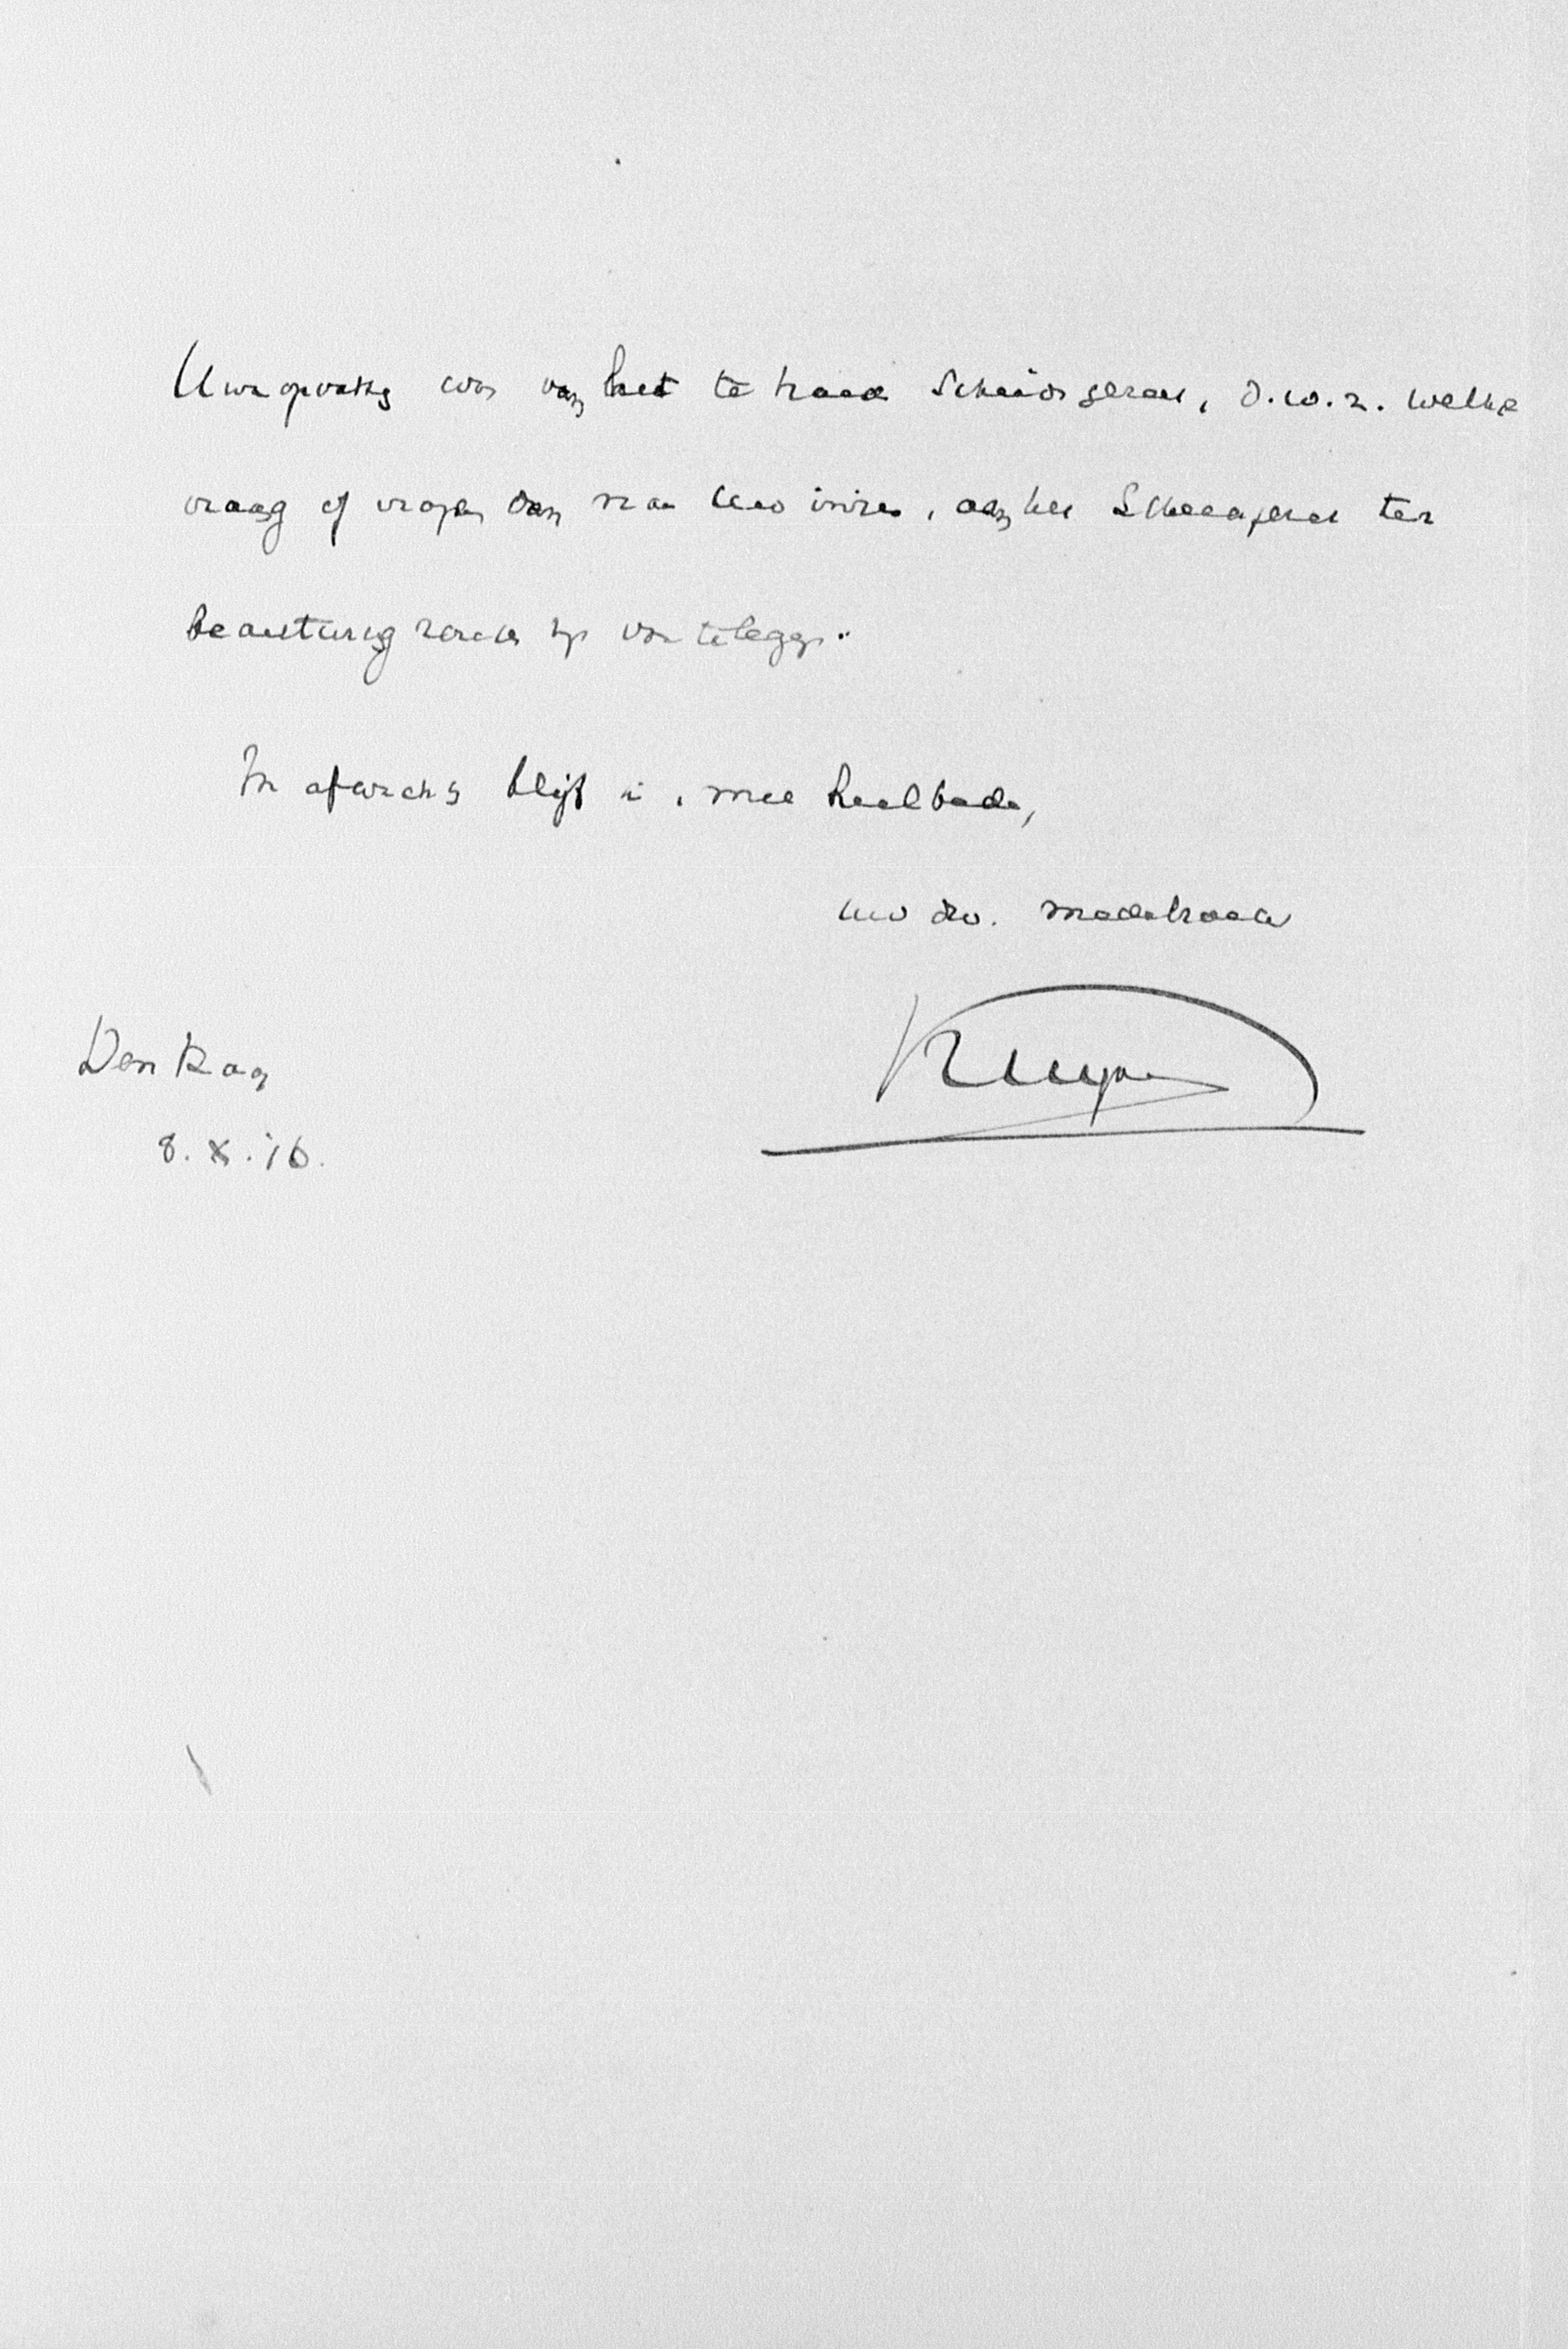 Uwe opvatting was van het te houden Scheidsgerecht, d.w.z. welke
vraag of vragen dan naar Uw inzien, aan het Scheidsgerecht ter
beantwoording zouden zijn voor te leggen.
In afwachting blijf ik, met heilbede,
Uw dw. medebroeder
Kuyper
Den Haag
8.X.'16.